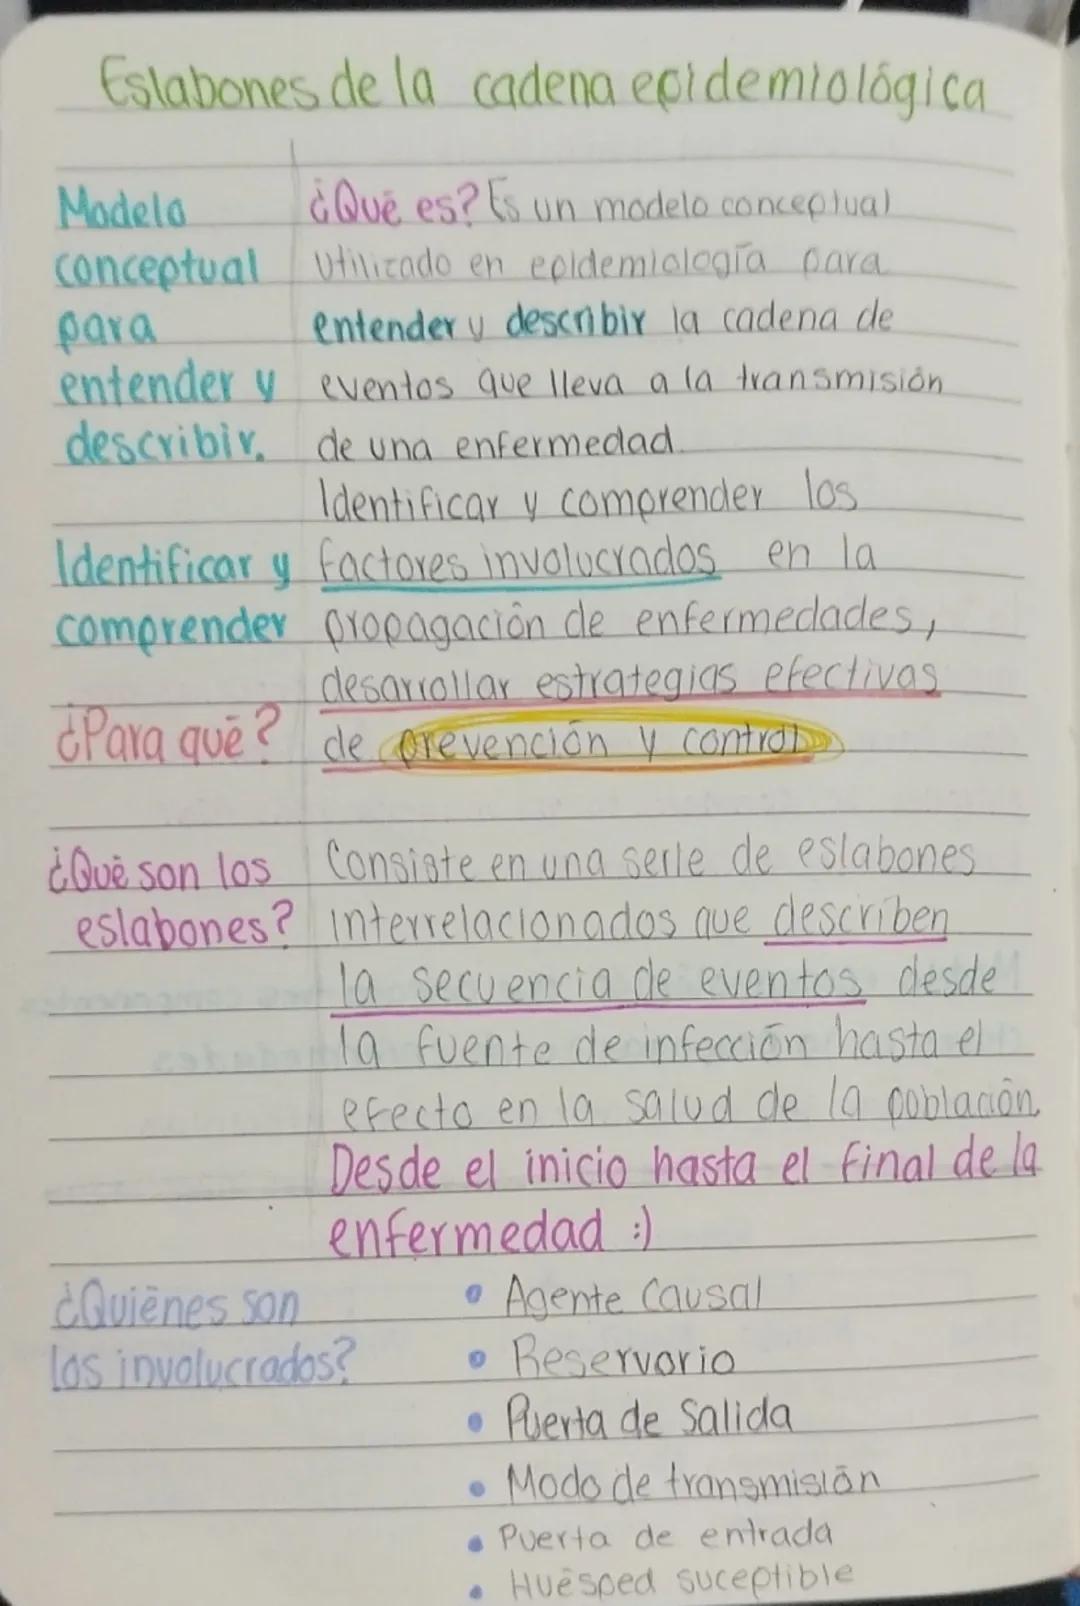 Eslabones de la cadena epidemiológica
Modelo
conceptual
para
entender y
describir.
¿Qué es? Es un modelo conceptual
utilizado en epidemiología para
entender y describir la cadena de
eventos que lleva a la transmisión
de una enfermedad.
Identificar y
comprender
¿Para qué?
Identificar y comprender los
factores involucrados en la
propagación de enfermedades,
desarrollar estrategias efectivas
de prevención y control
¿Qué son los
eslabones?
Consiste en una serie de eslabones
interrelacionados que describen
la secuencia de eventos desde
la fuente de infección hasta el
efecto en la salud de la población.
Desde el inicio hasta el final de la
enfermedad :)
¿Quiénes son
los involucrados?
• Agente Causal
• Reservorio
• Puerta de Salida
• Modo de transmisión
• Puerta de entrada
• Huésped suceptible